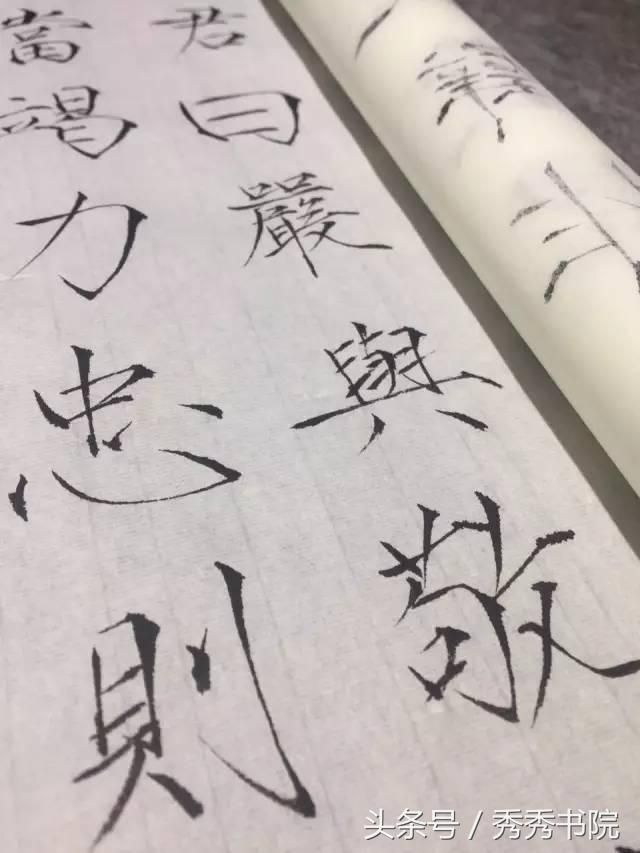 君曰嚴與敬
當竭力忠則
头条号 / 秀秀书院